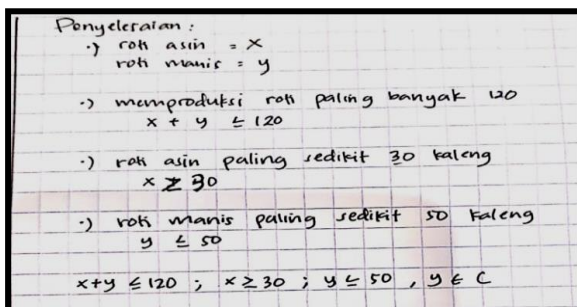 Penyelesaian :
·) roti asin = x
roti manis = y
·) memproduksi roti paling banyak 120
x + y ≤ 120
·) roti asin paling sedikit 30 kaleng
x ≥ 30
·) roti manis paling sedikit 50 kaleng
y ≤ 50
x+y ≤ 120 ; x ≥ 30 ; y ≤ 50 , y ∈ C